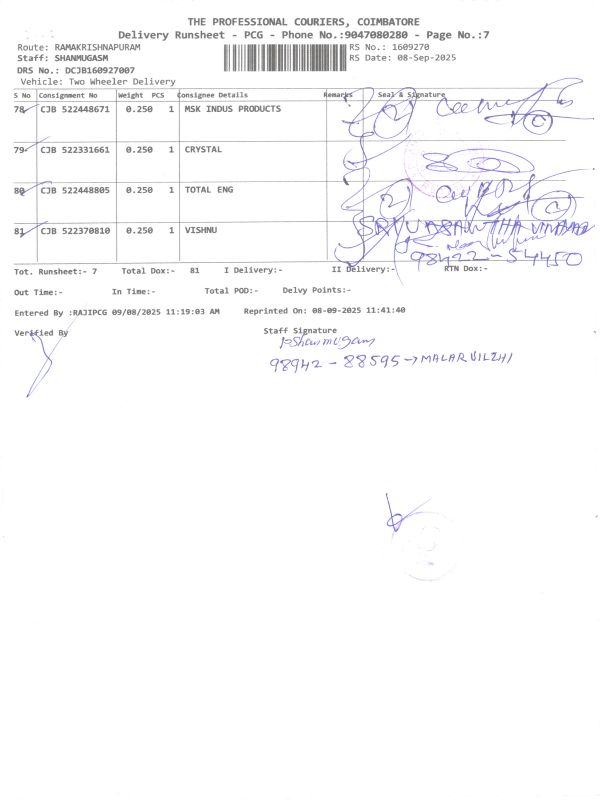 THE PROFESSIONAL COURIERS, COIMBATORE
Delivery Runsheet - PCG - Phone No.:9047080280 - Page No.:7
Route: RAMAKRISHNAPURAM RS No.: 1609270
Staff: SHANMUGASM RS Date: 08-Sep-2025
DRS No.: DCJB160927007
Vehicle: Two Wheeler Delivery
S No Consignment No Weight PCS Consignee Details Remarks Seal & Signature
78 CJB 522448671 0.250 1 MSK INDUS PRODUCTS
79 CJB 522331661 0.250 1 CRYSTAL
80 CJB 522448805 0.250 1 TOTAL ENG
81 CJB 522370810 0.250 1 VISHNU
98422-54450
Tot. Runsheet:- 7 Total Dox:- 81 I Delivery:- II Delivery:- RTN Dox:-
Out Time:- In Time:- Total POD:- Delvy Points:-
Entered By :RAJIPCG 09/08/2025 11:19:03 AM Reprinted On: 08-09-2025 11:41:40
Verified By Staff Signature
P.Shanmugam
98942 - 88595 → MALAR VILZHI